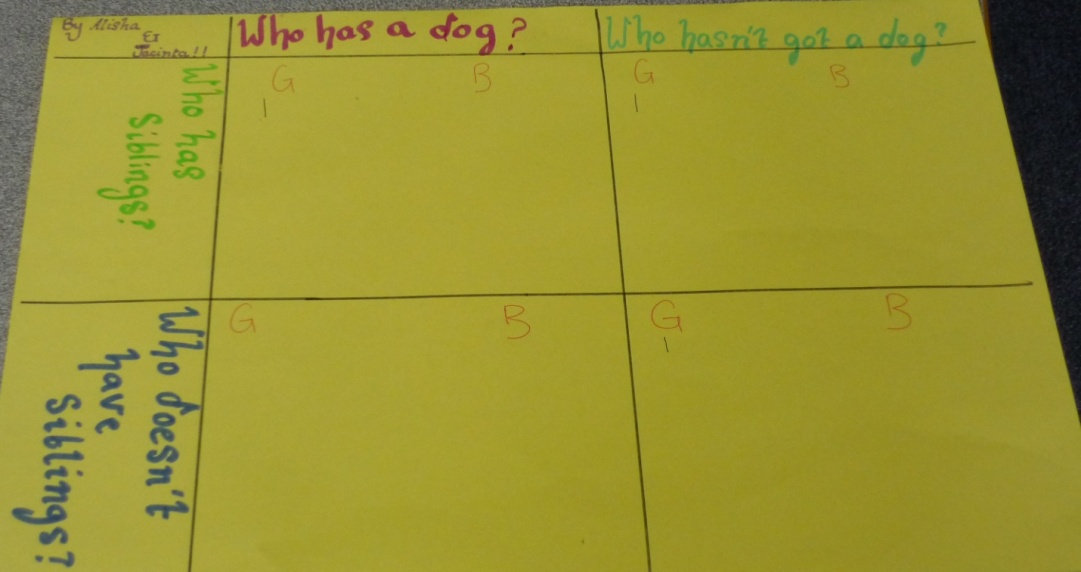 By Alisha
&
Jacinta!!
Who has a dog?
Who hasn't got a dog?
Who has
Siblings?
G
B
G
B
I
I
Who doesn't
have
Siblings?
G
B
G
B
I